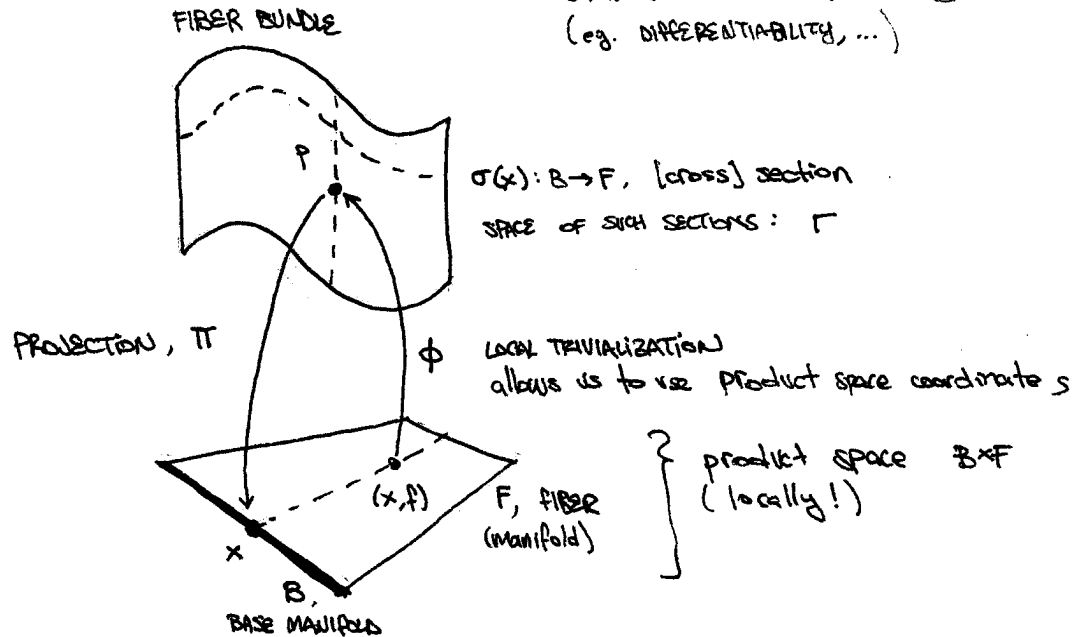 FIBER BUNDLE
(eg. DIFFERENTIABILITY, ...)
P
σ(x): B→F, [cross] section
SPACE OF SUCH SECTIONS: Γ
PROJECTION, π
ϕ
LOCAL TRIVIALIZATION
allows us to use product space coordinates
product space B×F
(locally!)
(x,f)
F, FIBER
(manifold)
x
B,
BASE MANIFOLD